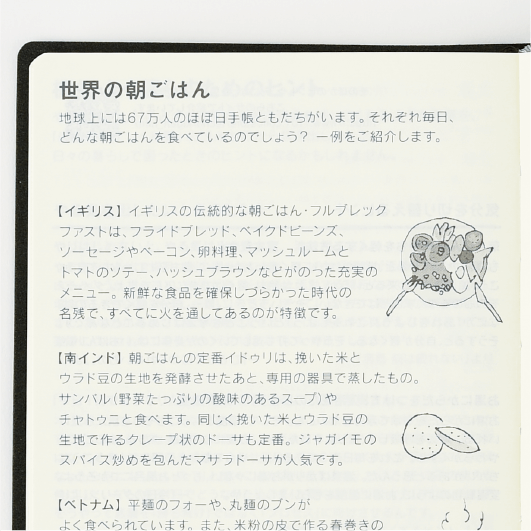 世界の朝ごはん
地球上には67万人のほぼ日手帳ともだちがいます。それぞれ毎日、
どんな朝ごはんを食べているのでしょう？ 一例をご紹介します。
【イギリス】イギリスの伝統的な朝ごはん・フルブレック
ファストは、フライドブレッド、ベイクドビーンズ、
ソーセージやベーコン、卵料理、マッシュルームと
トマトのソテー、ハッシュブラウンなどがのった充実の
メニュー。新鮮な食品を確保しづらかった時代の
名残で、すべてに火を通してあるのが特徴です。
【南インド】朝ごはんの定番イドゥリは、挽いた米と
ウラド豆の生地を発酵させたあと、専用の器具で蒸したもの。
サンバル（野菜たっぷりの酸味のあるスープ）や
チャトゥニと食べます。同じく挽いた米とウラド豆の
生地で作るクレープ状のドーサも定番。ジャガイモの
スパイス炒めを包んだマサラドーサが人気です。
【ベトナム】平麺のフォーや、丸麺のブンが
よく食べられています。また、米粉の皮で作る春巻きの